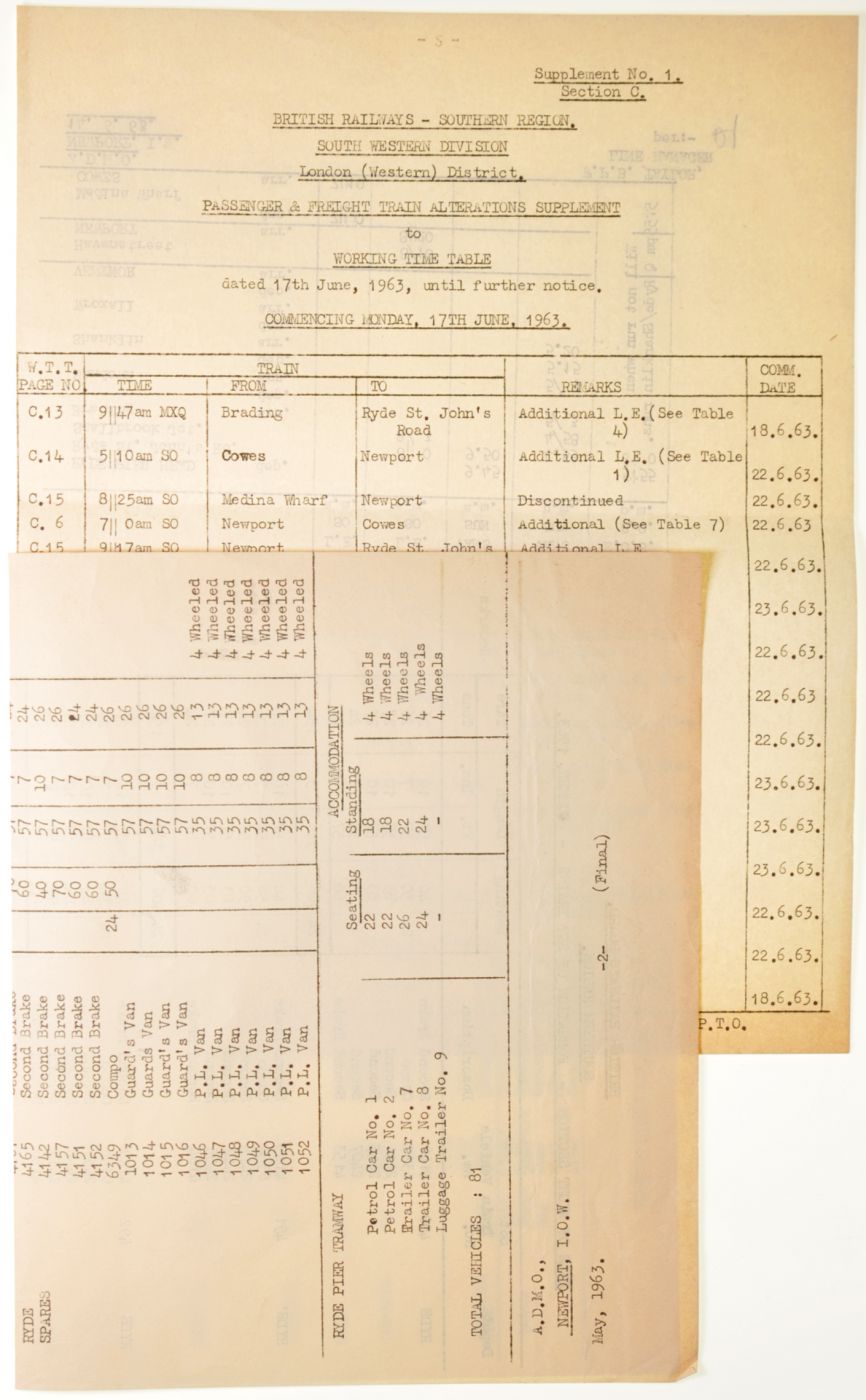 - S -
Supplement No. 1.
Section C.
BRITISH RAILWAYS - SOUTHERN REGION.
SOUTH WESTERN DIVISION
London (Western) District.
PASSENGER & FREIGHT TRAIN ALTERATIONS SUPPLEMENT
to
WORKING TIME TABLE
dated 17th June, 1963, until further notice.
COMMENCING MONDAY, 17TH JUNE, 1963.
W.T.T. TRAIN COMM.
PAGE NO TIME FROM TO REMARKS DATE
C.13 9||47am MXQ Brading Ryde St. John's Additional L.E.(See Table
Road 4) 18.6.63.
C.14 5||10am SO Cowes Newport Additional L.E. (See Table
1) 22.6.63.
C.15 8||25am SO Medina Wharf Newport Discontinued 22.6.63.
C. 6 7|| 0am SO Newport Cowes Additional (See Table 7) 22.6.63
C.15 9||17am SO Newport Ryde St. John's Additional L.E.
22.6.63.
23.6.63.
22.6.63.
22.6.63
22.6.63.
23.6.63.
23.6.63.
23.6.63.
22.6.63.
22.6.63.
18.6.63.
P.T.O.
RYDE 4165 Second Brake 60 57 7 24
SPARES 4142 Second Brake 40 57 10 26
4157 Second Brake 70 57 7 26
4151 Second Brake 60 57 7 24
4152 Second Brake 60 57 7 24
6349 Compo 24 50 57 7 26
1013 Guard's Van 57 10 26
1014 Guards Van 57 10 26
1015 Guard's Van 57 10 26
1016 Guard's Van 57 10 26
1046 P.L. Van 35 8 13 4 Wheeled
1047 P.L. Van 35 8 13 4 Wheeled
1048 P.L. Van 35 8 13 4 Wheeled
1049 P.L. Van 35 8 13 4 Wheeled
1050 P.L. Van 35 8 13 4 Wheeled
1051 P.L. Van 35 8 13 4 Wheeled
1052 P.L. Van 35 8 13 4 Wheeled
RYDE PIER TRAMWAY ACCOMMODATION
Seating Standing
Petrol Car No. 1 22 18 4 Wheels
Petrol Car No. 2 22 18 4 Wheels
Trailer Car No. 7 26 22 4 Wheels
Trailer Car No. 8 24 24 4 Wheels
Luggage Trailer No. 9 - - 4 Wheels
TOTAL VEHICLES : 81
A.D.M.O.,
NEWPORT, I.O.W.
May, 1963. -2- (Final)